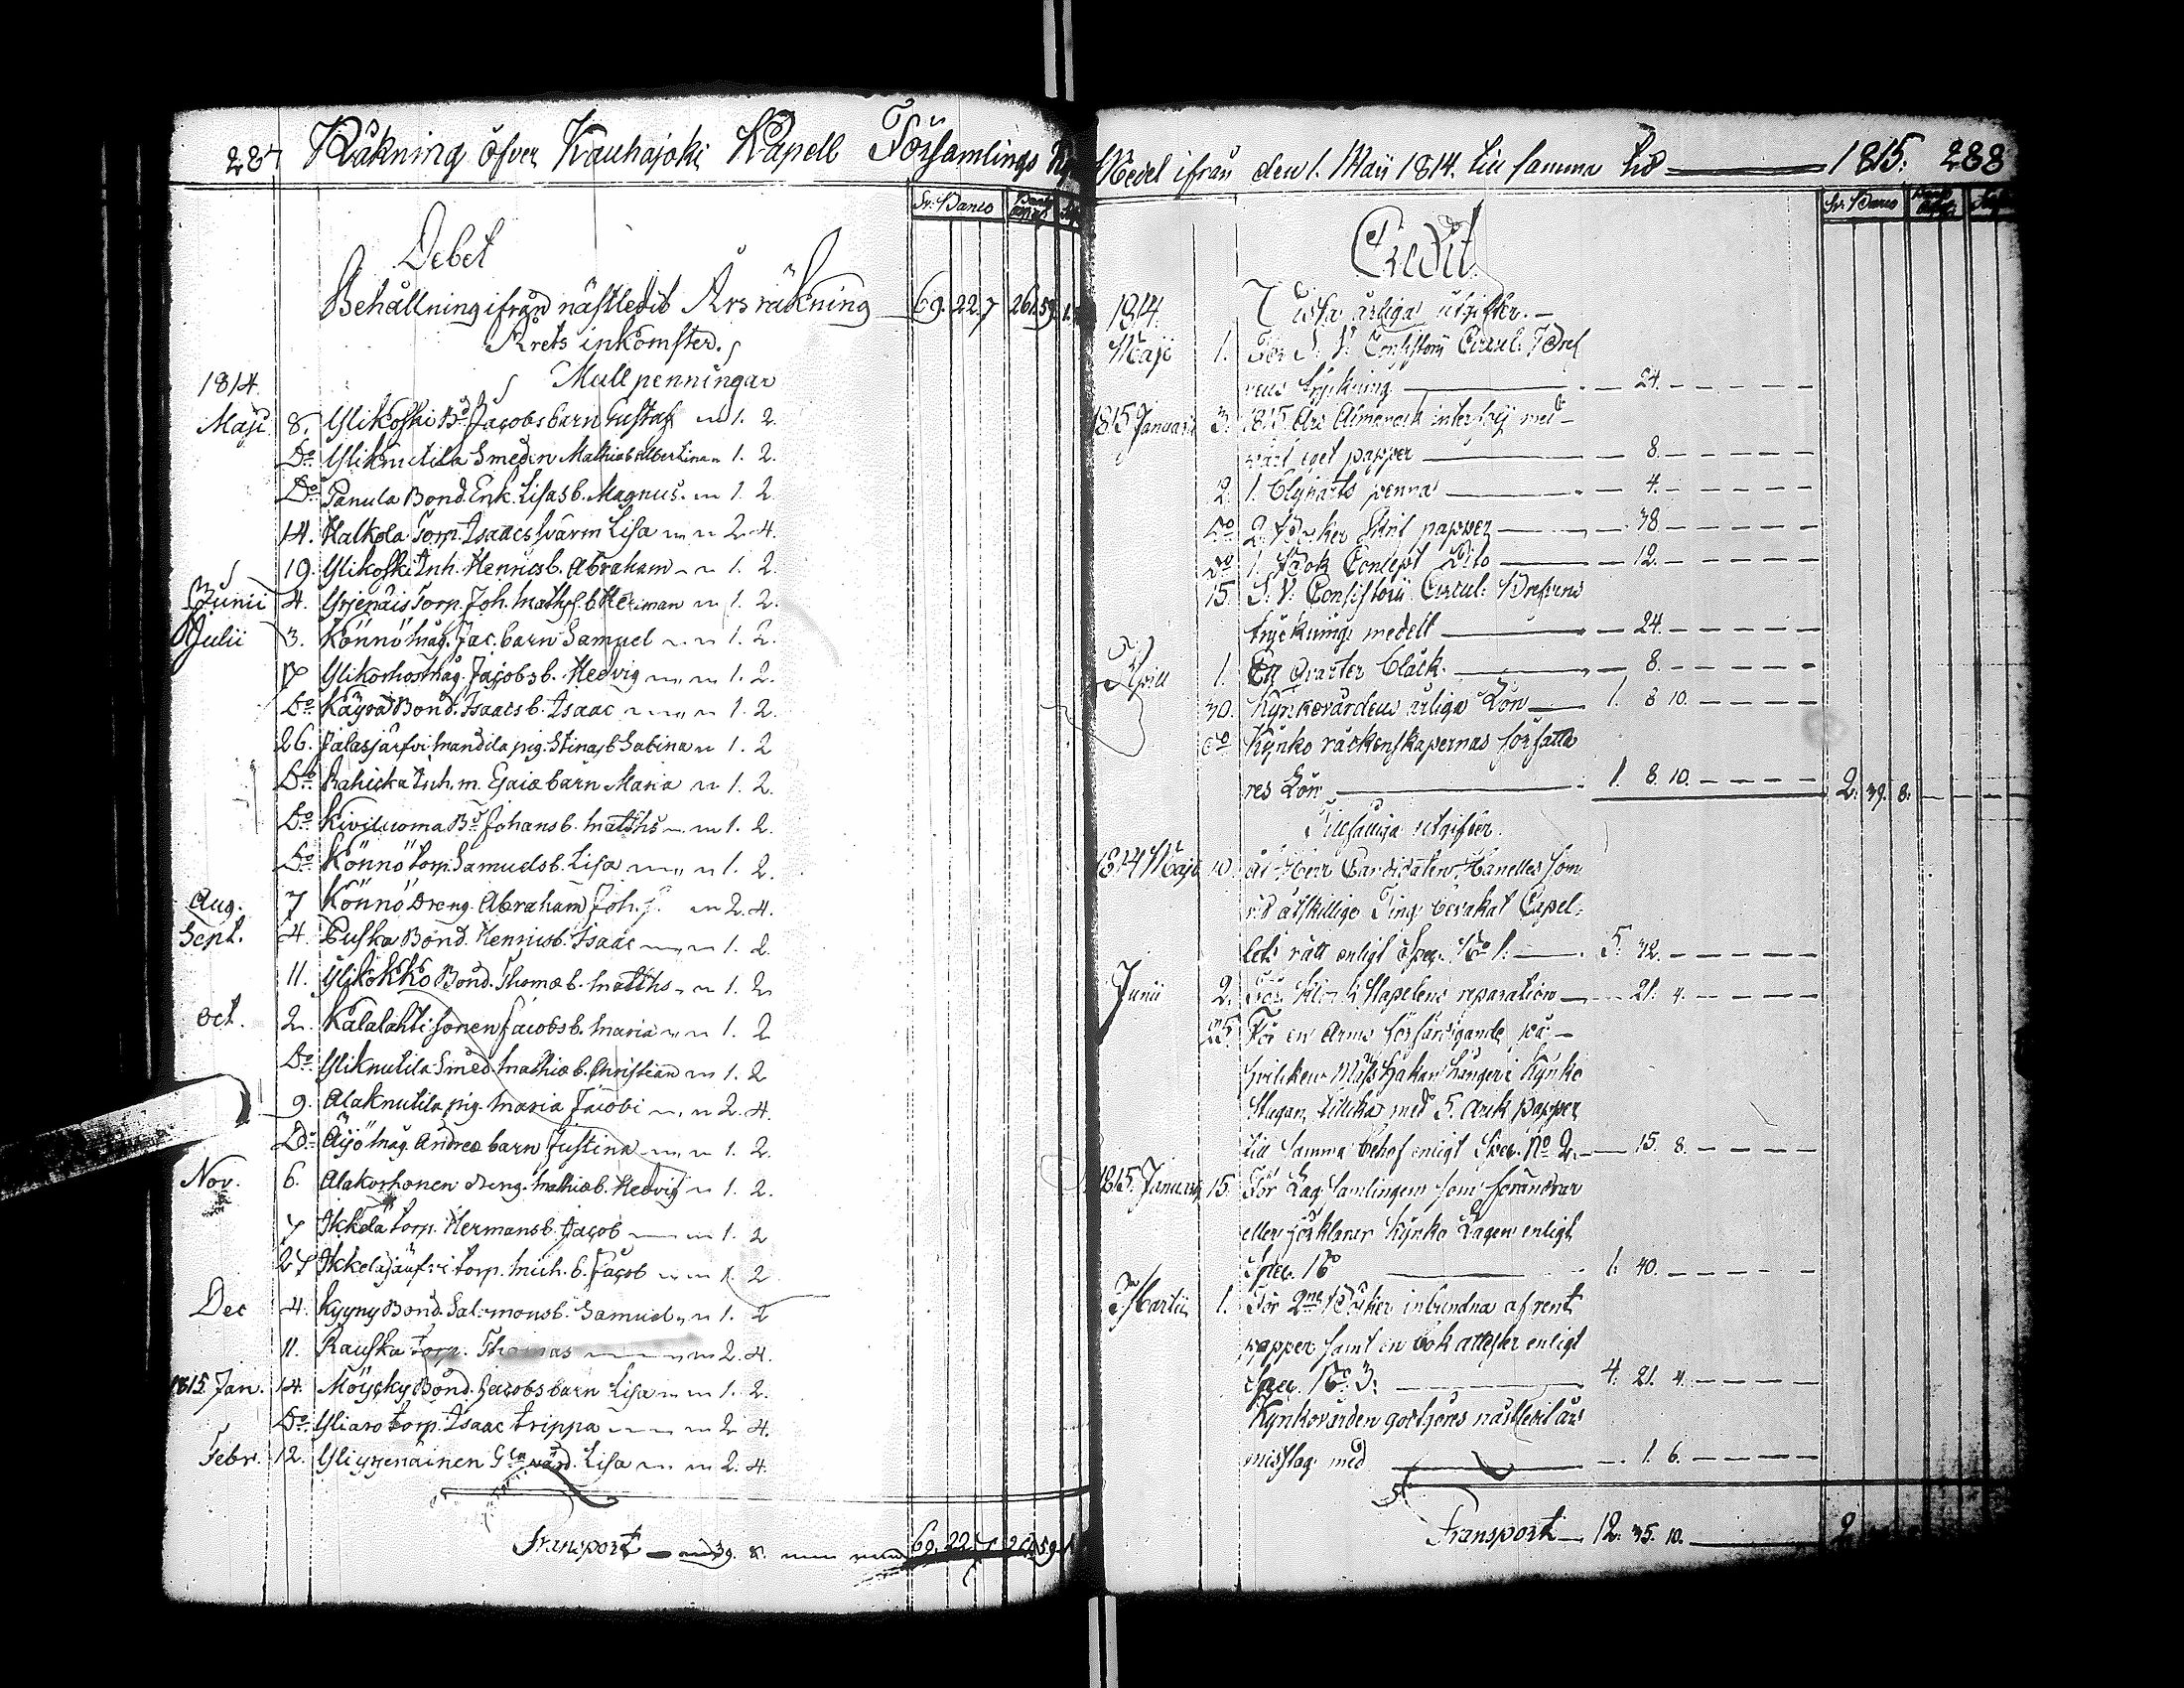 287 Räkning öfver Kauhajoki Kapell Församlings
Sv: Banco
Debet
Behållning ifrån nästledit Års räkning 69. 22. 7 261. 59. 1.
Årets inkomster.
1814. Mullpenningar
Maji 8. Ylikoski Bd. Jacobs barn Gustaf 1. 2.
Do Yliknutila Smeden Mathiæ b. Albertina 1. 2.
Do Panula Bond. Enk. Lisas b. Magnus 1. 2.
14. Halkola Torp. Isaacs svärm Lisa 2. 4.
19. Ylikoski Inh. Henrics b. Abraham 1. 2.
Junii 4. Yrjenäis Torp. Joh. Maths. b. Herman 1. 2.
Julii 3. Könnö Måg. Jac. barn Samuel 1. 2.
7 Ylikorhos Måg. Jacobs b. Hedvig 1. 2.
Do Käyrä Bond. Isaacs b. Isaac 1. 2.
26. Jalasjärfvi Mandila pig. Stinas b. Sabina 1. 2
Do Inh. m. barn Maria 1. 2.
Do Kiviluoma Bd Johans b. Matths 1. 2.
Do Könnö Torp. Samuels b. Lisa 1. 2.
Aug. 7 Könnö Dreng. Abraham Joh. 2. 4.
Sept. 4. Puska Bond. Henrics b. Isaac 1. 2.
11. Ylikokko Bond. Thomæ b. Matths 1. 2
Oct. 2. Kalalahti sonen Jacobs b. Maria 1. 2
Do Yliknutila Smed Mathiæ b. Christian 1. 2
9. Alaknutila pig. Maria Jacobi 2. 4.
Do Äijö Måg. Andreæ barn Justina 1. 2.
Nov. 6. Alakorhonen dreng. Mathiæ b. Hedvig 1. 2.
7 Ikkelä Torp. Hermans b. Jacob 1. 2
27 Ikkeläjärfvi Torp. Mich. b. Jacob 1. 2
Dec 4. Kyyny Bond. Salomons b. Samuel 1. 2
11. Rauska Torp. Thomas 2. 4.
1815 Jan. 14. Möycky Bond. Jacobs barn Lisa 1. 2.
Do Yliaro Torp. Isaac Krippa 2. 4.
Febr. 12. Yliyrjenäinen Lisa 2. 4.
Transport 39. 8. 69. 22. 7 261. 59. 1
Medel ifrån den 1. Maii 1814. till samma tid 1815. 288
Sv: Banco
Credit
1814. Vissa årliga utgifter.
Maji 1. För S. V. Consistorii Circul: Bref
vens tryckning 24.
1815 Januarii 3. 1815 Års Almanach med
vart eget papper 8.
2. 1. Blyharts penna 4.
Do 2. Böcker Skrif papper 38
Do 1. Bok Concept Dito 12.
15. S. V. Consistorii Circul: Brefvens
trycknings medell 24.
April 1. Ett Qvarter bläck. 8.
30. Kyrkovärdens årliga Lön 1. 8 10.
Do Kyrko räckenskapernas författa
res Lön 1. 8. 10. 2. 39. 8.
Tillfälliga utgifter.
1814 Maji 10. åt Herr Candidaten Hanelles som
vid åtskillige Ting bevakat Capel-
lets rätt enligt Spec. No 1. 5. 32.
Junii 2. För Klock Stapelens reparation 21. 4.
25. För en Arms förfärdigande på
hvilcken Mäss Hakan hänger i Kyrko
Stugan, tillika med 5. Arck papper
till samma behof enligt Spec. No 2. 15. 8.
1815. Januarii 15. För Lag Samlingen som förändrar
eller förklarar Kyrko Lagen enligt
Spec. No 1. 40.
Martii 1. För 2ne Böcker inbundna af rent
papper samt en bok attester enligt
Spec. No 3. 4. 21. 4.
Kyrkovärden godtgöres nästledit års
misstag med 1. 6.
Transport 12. 35. 10. 2